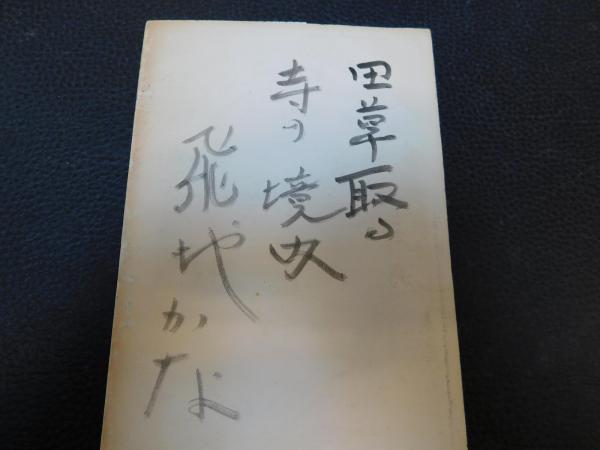 田草取る
寺の境内
飛地かな